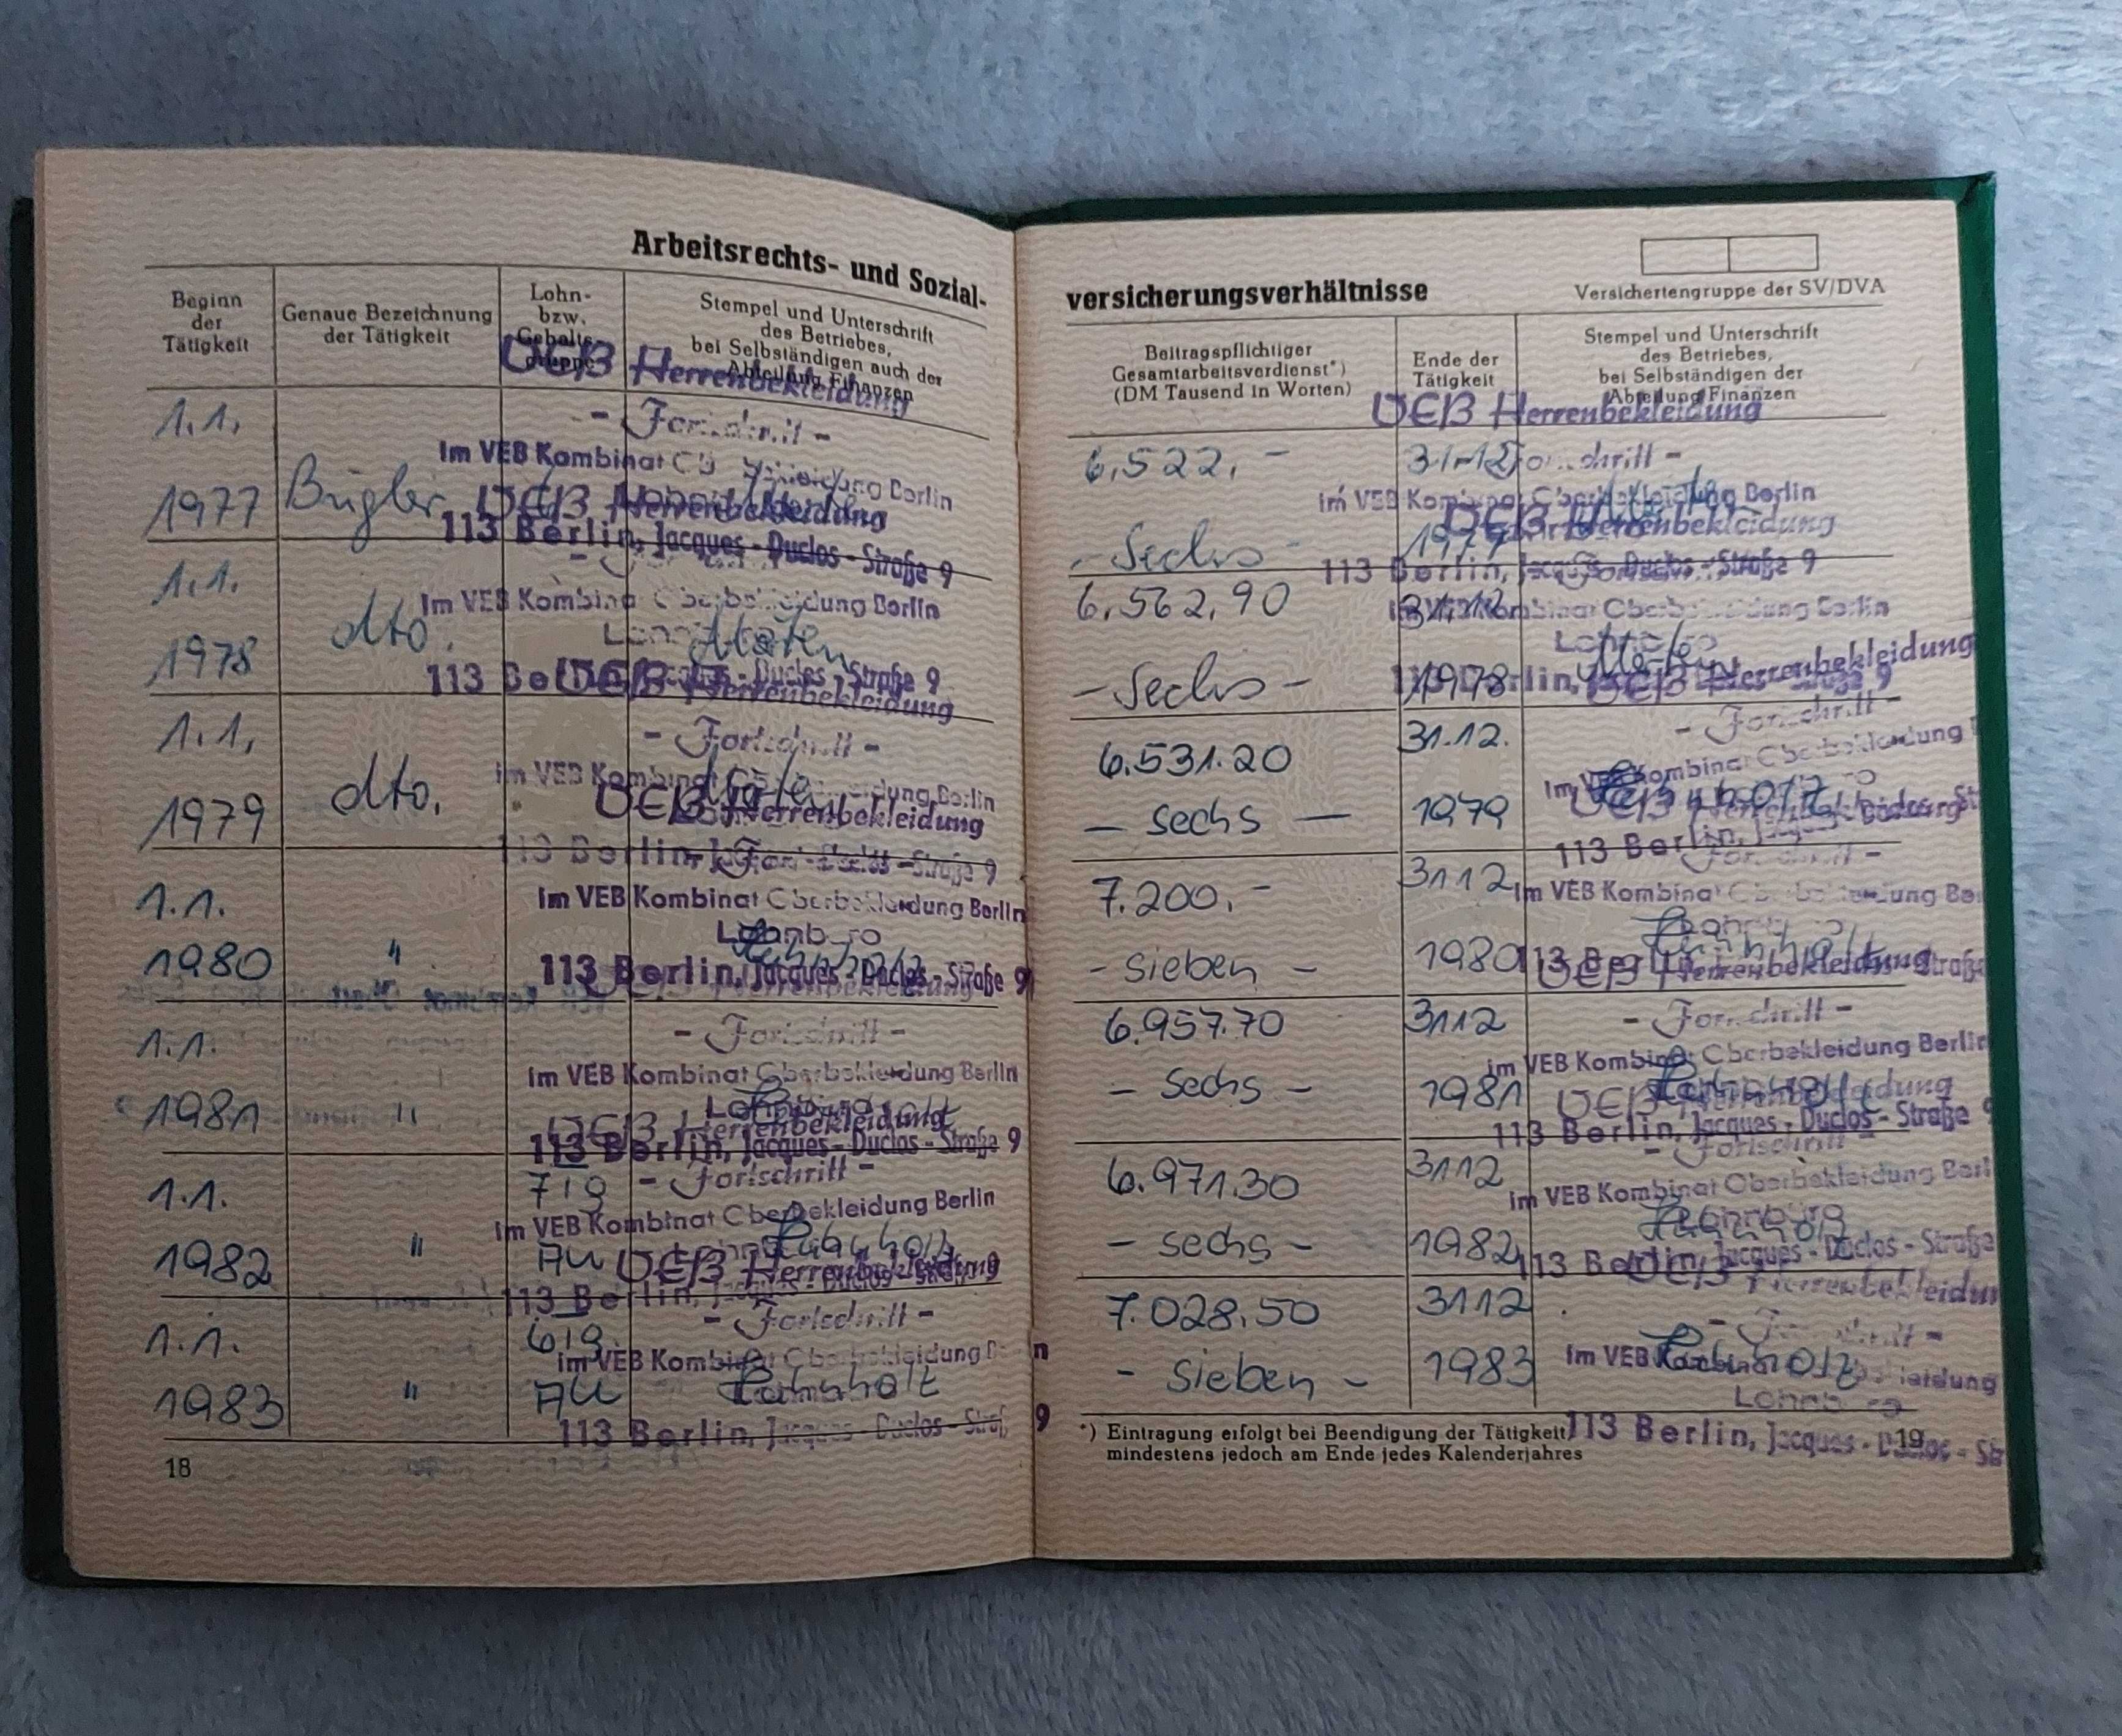 Arbeitsrechts- und Sozial-
Beginn
der
Tätigkeit
Genaue Bezeichnung
der Tätigkeit
Lohn-
bzw.
Gehalts-
gruppe
Stempel und Unterschrift
des Betriebes,
bei Selbständigen auch der
Abteilung Finanzen
VEB Herrenbekleidung
1.1.
- Fortschritt -
im VEB Kombinat Oberbekleidung Berlin
1977
Bügler
VEB Herrenbekleidung
113 Berlin, Jacques-Duclos-Straße 9
1.1.
dto.
im VEB Kombinat Oberbekleidung Berlin
1978
113 Berlin, Jacques-Duclos-Straße 9
VEB Herrenbekleidung
1.1.
- Fortschritt -
dto.
im VEB Kombinat Oberbekleidung Berlin
1979
VEB Herrenbekleidung
113 Berlin, Jacques-Duclos-Straße 9
1.1.
im VEB Kombinat Oberbekleidung Berlin
Lohnbüro
1980
"
113 Berlin, Jacques-Duclos-Straße 9
1.1.
- Fortschritt -
im VEB Kombinat Oberbekleidung Berlin
Lohnbüro
1981
"
VEB Herrenbekleidung
113 Berlin, Jacques-Duclos-Straße 9
1.1.
- Fortschritt -
im VEB Kombinat Oberbekleidung Berlin
1982
"
VEB Herrenbekleidung
113 Berlin, Jacques-Duclos-Straße 9
1.1.
- Fortschritt -
im VEB Kombinat Oberbekleidung
1983
"
113 Berlin, Jacques-Duclos-Straße 9
18
versicherungsverhältnisse
Versichertengruppe der SV/DVA
Beitragspflichtiger
Gesamtarbeitsverdienst*)
(DM Tausend in Worten)
Ende der
Tätigkeit
Stempel und Unterschrift
des Betriebes,
bei Selbständigen der
Abteilung Finanzen
VEB Herrenbekleidung
6.522,-
31.12
Fortschritt -
im VEB Kombinat Oberbekleidung Berlin
VEB Herrenbekleidung
- Sechs -
1977
113 Berlin, Jacques-Duclos-Straße 9
6.562,90
31.12
im VEB Kombinat Oberbekleidung Berlin
Lohnbüro
- Sechs -
1978
113 Berlin,
VEB Herrenbekleidung
Straße 9
31.12.
- Fortschritt -
6.531.20
im VEB Kombinat Oberbekleidung
- sechs -
1979
113 Berlin,
31.12
7.200,-
im VEB Kombinat Oberbekleidung Be
- sieben -
1980
113 Berlin,
VEB Herrenbekleidung
Straße
6.957.70
31.12
- Fortschritt -
im VEB Kombinat Oberbekleidung Berlin
- sechs -
1981
VEB Herrenbekleidung
113 Berlin, Jacques-Duclos-Straße 9
- Fortschritt -
6.971.30
31.12
im VEB Kombinat Oberbekleidung Berl
- sechs -
1982
113 Berlin, Jacques-Duclos-Straße
VEB Herrenbekleidun
7.028.50
31.12
im VEB Kombinat
- sieben -
1983
Lohnbüro
*) Eintragung erfolgt bei Beendigung der Tätigkeit
mindestens jedoch am Ende jedes Kalenderjahres
113 Berlin, Jacques-Duclos-St
19